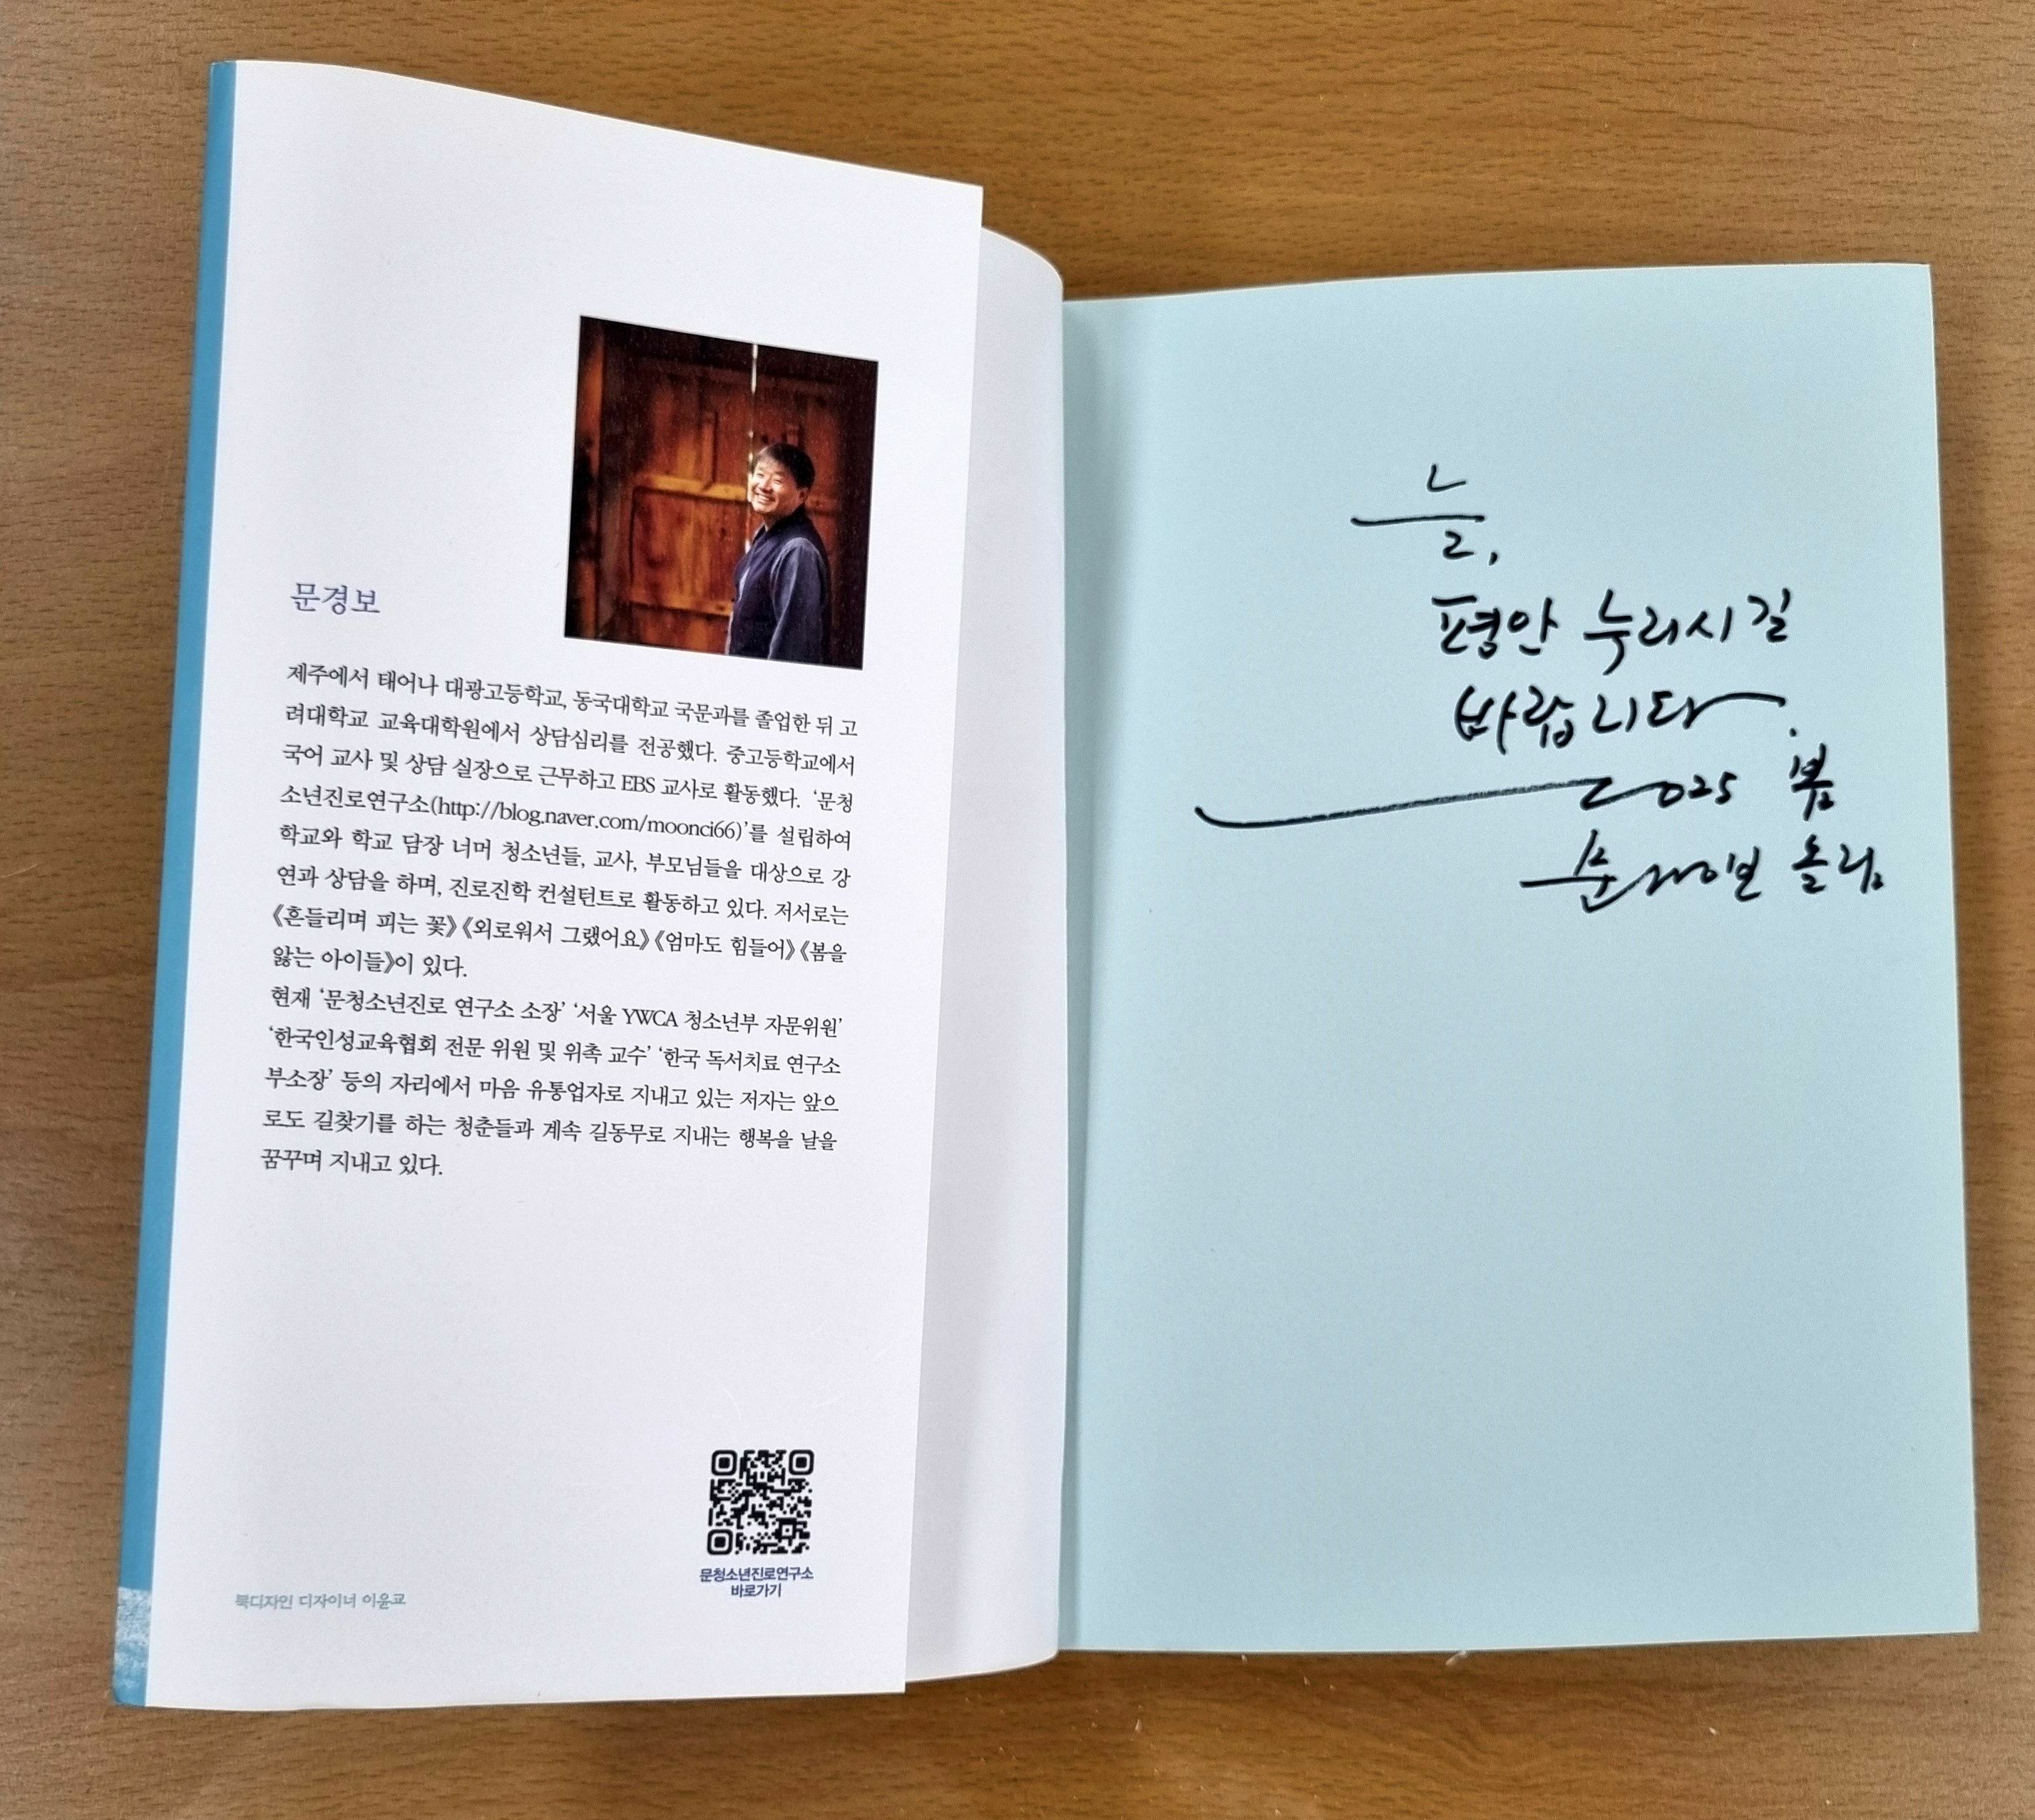 문경보
제주에서 태어나 대광고등학교, 동국대학교 국문과를 졸업한 뒤 고
려대학교 교육대학원에서 상담심리를 전공했다. 중고등학교에서
국어 교사 및 상담 실장으로 근무하고 EBS 교사로 활동했다. ‘문청
소년진로연구소(http://blog.naver.com/moonci66)’를 설립하여
학교와 학교 담장 너머 청소년들, 교사, 부모님들을 대상으로 강
연과 상담을 하며, 진로진학 컨설턴트로 활동하고 있다. 저서로는
《흔들리며 피는 꽃》《외로워서 그랬어요》《엄마도 힘들어》《봄을
앓는 아이들》이 있다.
현재 ‘문청소년진로 연구소 소장’ ‘서울 YWCA 청소년부 자문위원’
‘한국인성교육협회 전문 위원 및 위촉 교수’ ‘한국 독서치료 연구소
부소장’ 등의 자리에서 마음 유통업자로 지내고 있는 저자는 앞으
로도 길찾기를 하는 청춘들과 계속 길동무로 지내는 행복을 날을
꿈꾸며 지내고 있다.
문청소년진로연구소
바로가기
북디자인 디자이너 이윤교
늘,
평안 누리시길
바랍니다.
2025 봄
문경보 올림